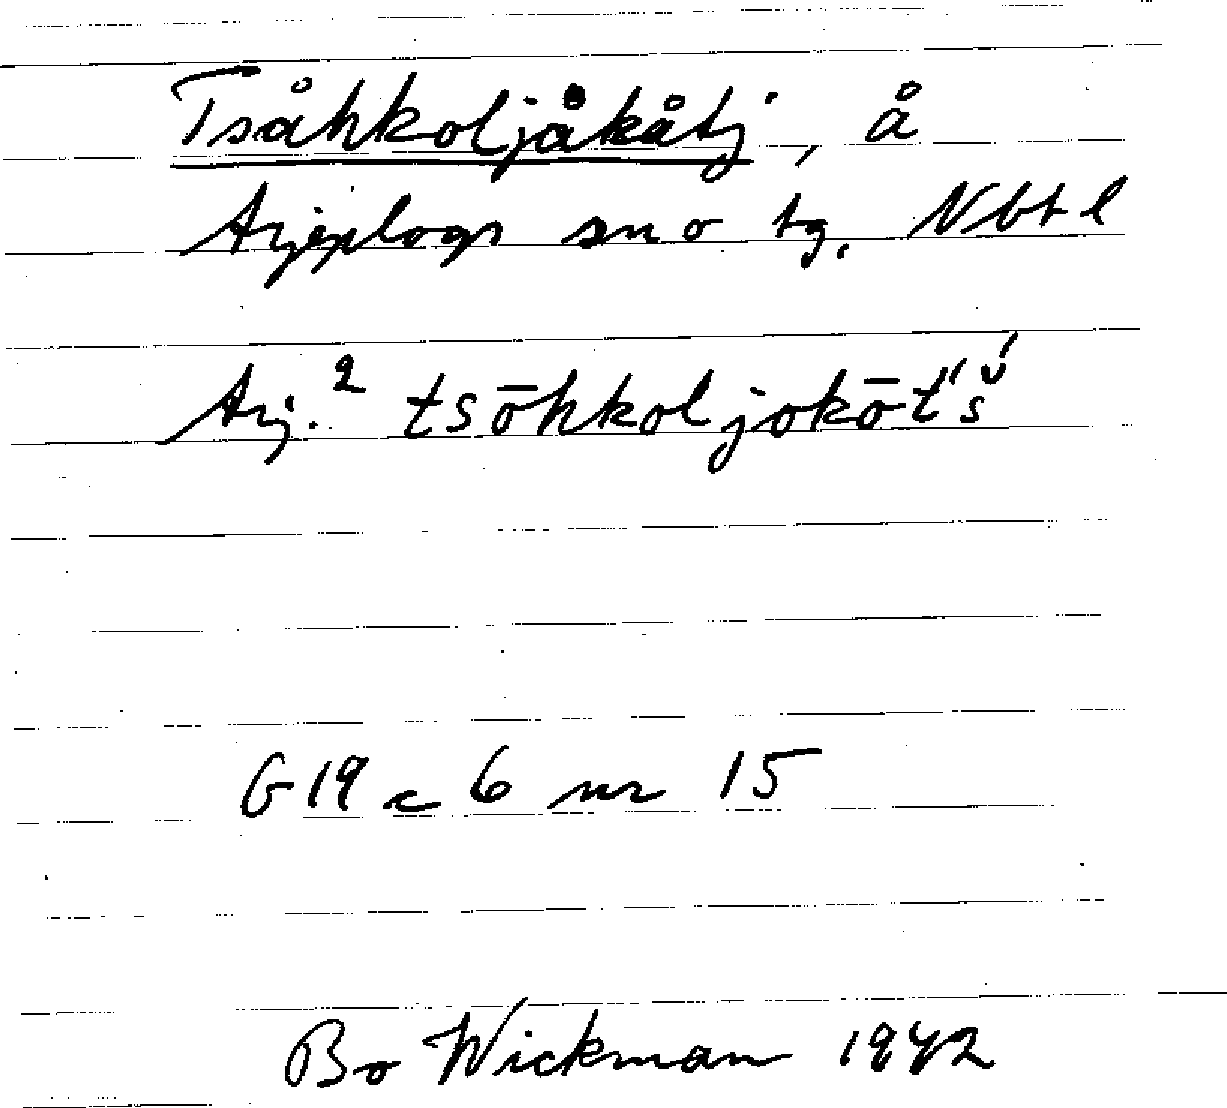 Tsåhkoljåkåtj, å
Arjeplogs sn o tg. Nbt l
Arj.² tsōhkoljokōt́'š́
G 19 c 6 nr 15
Bo Wickman 1942